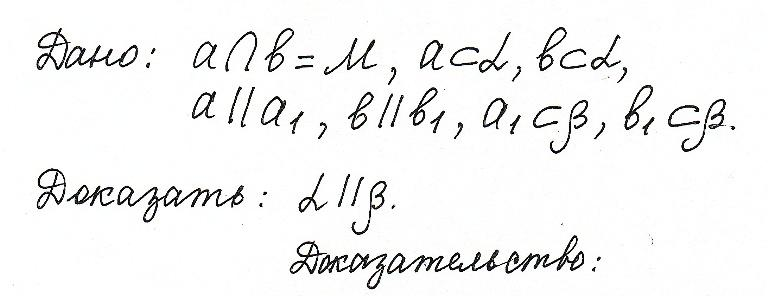 Дано: a∩b=M, a⊂α, b⊂α,
a||a₁, b||b₁, a₁⊂β, b₁⊂β.
Доказать: α||β.
Доказательство: